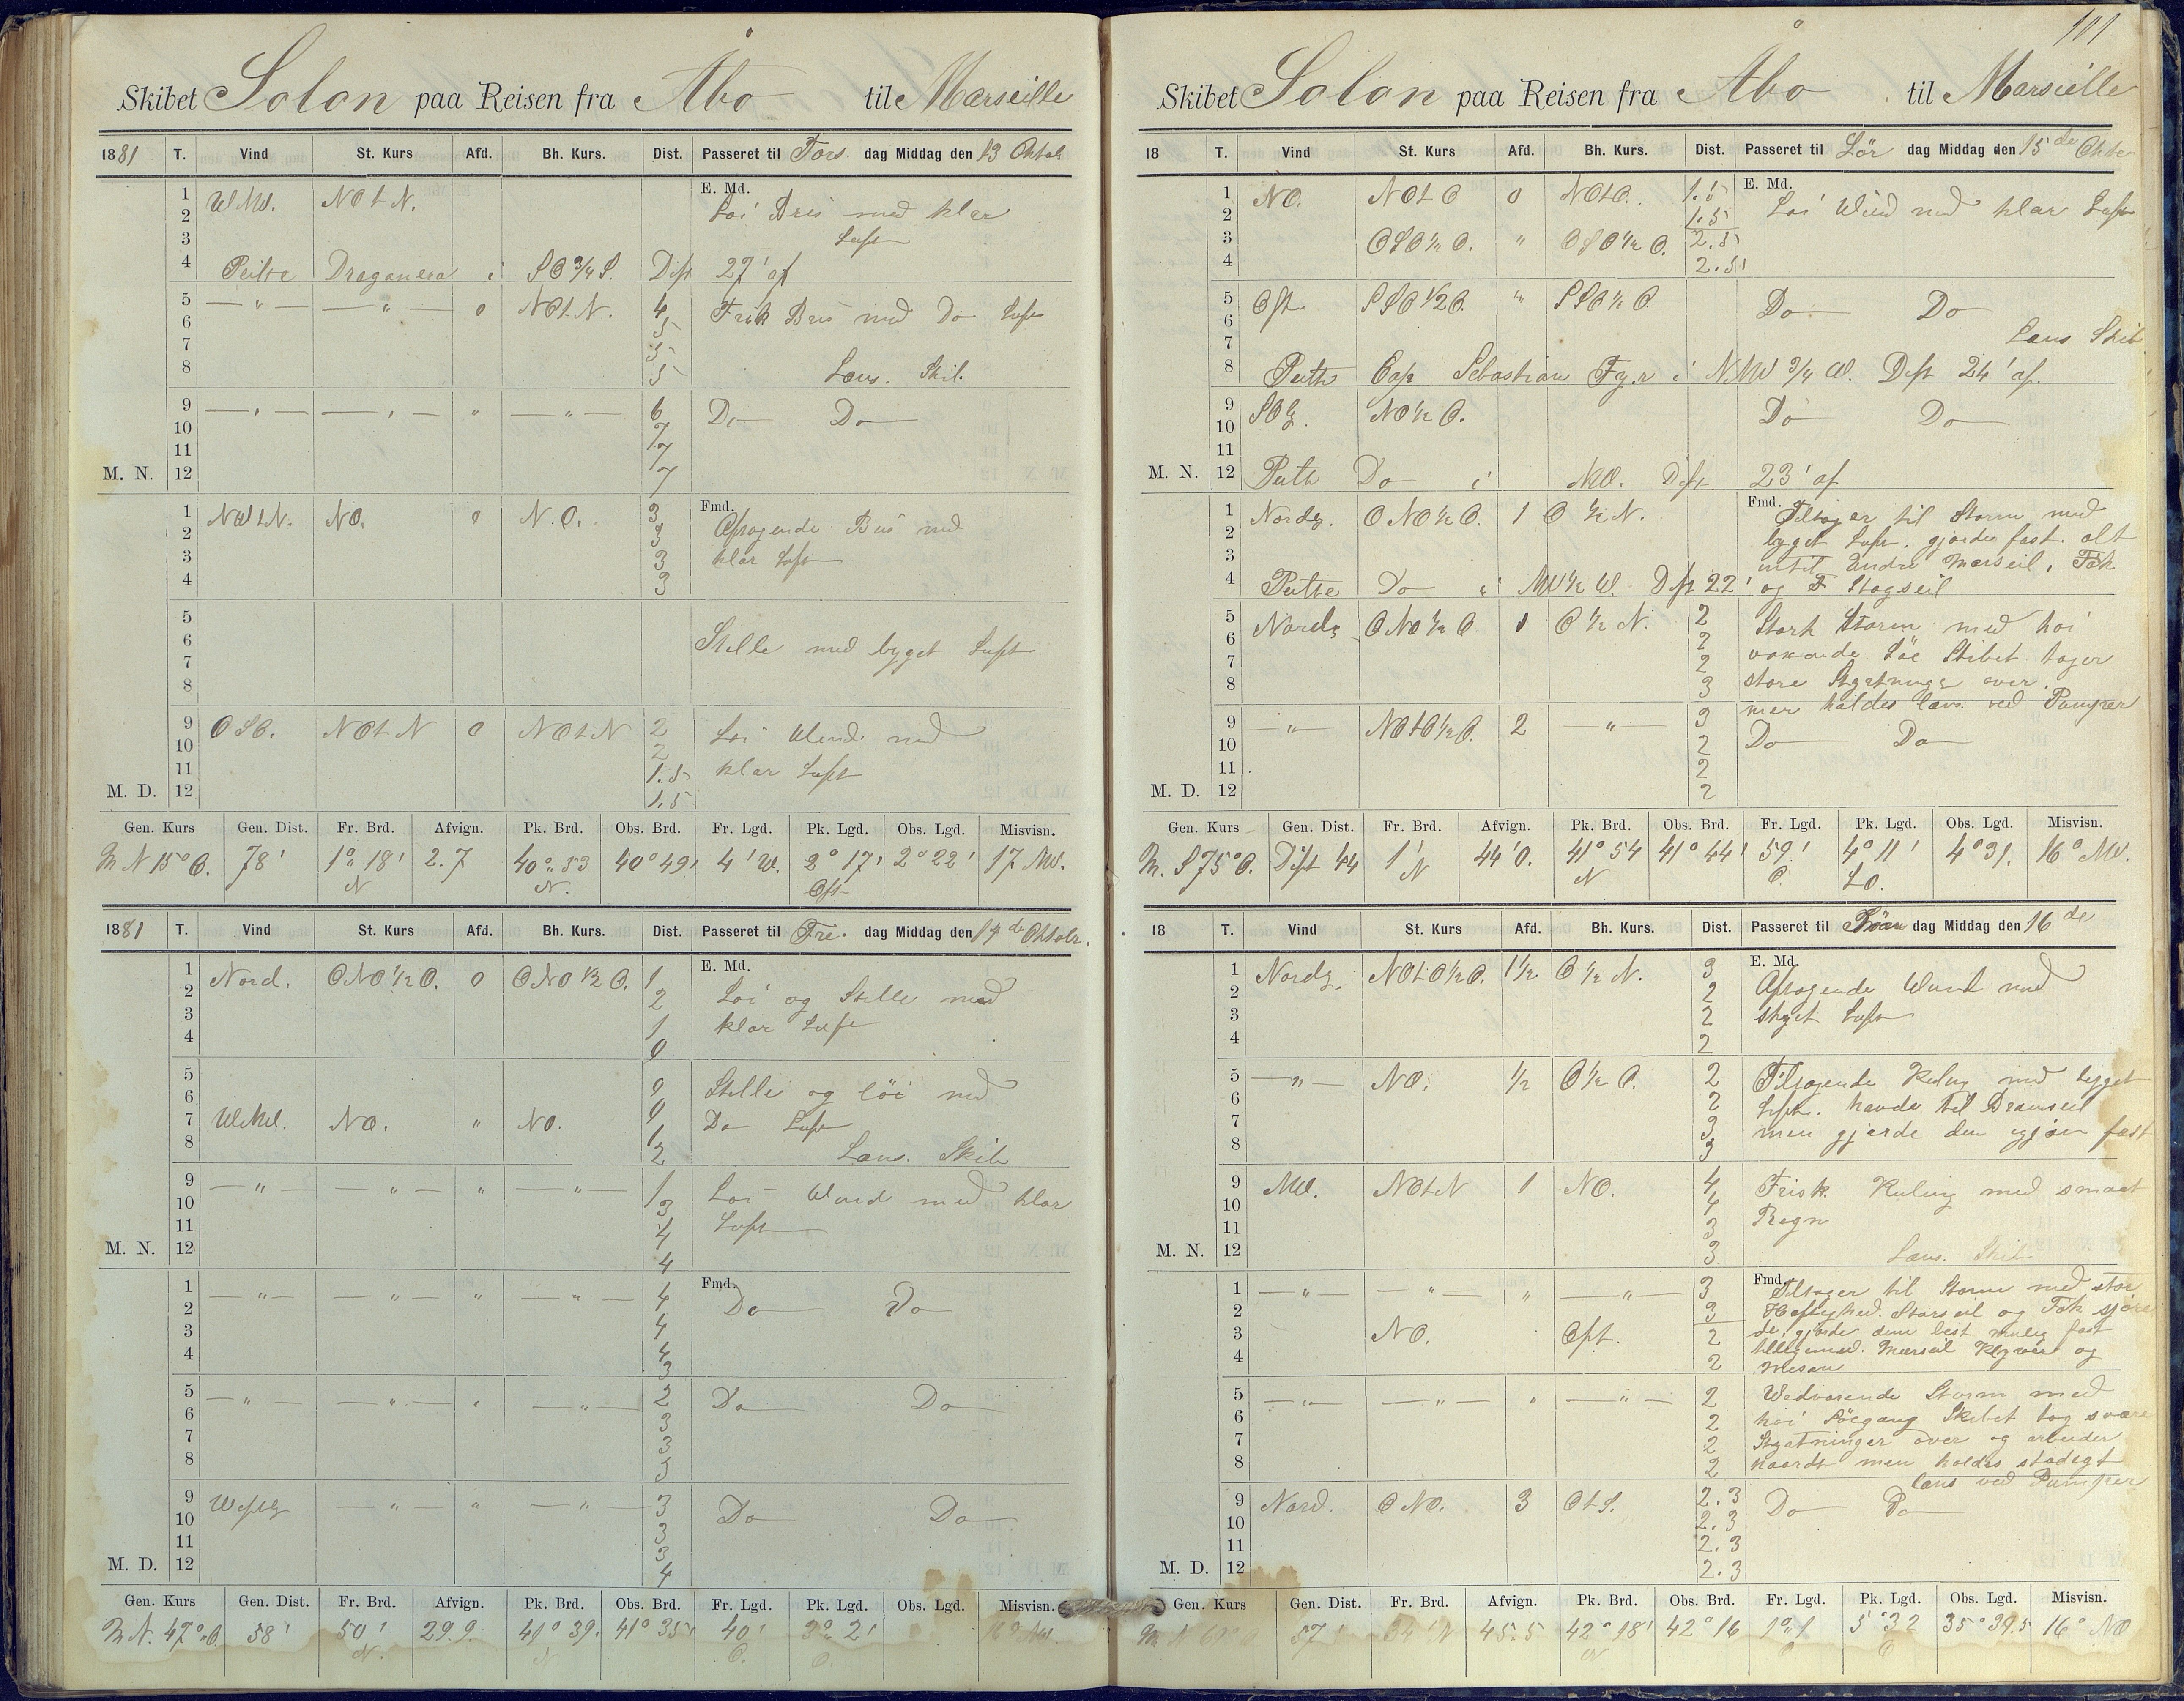 Skibet Solon paa Reisen fra Åbo til Marseille
1881 T. Vind St. Kurs Afd. Bh. Kurs. Dist. Passeret til Tors. dag Middag den 13 Oktob.
E. Md.
1 WNW. NOtN. Löi Bris med klar
2
3 Luft
4 Peilte Dragonera i SO 3/4 S. Dist 27' af
5 — " — — " — 0 NOtN. 4 Frisk Bris med Do Luft
6 5
7 5
8 5 Læns. Skib.
9 — " — — " — " — " — 6 Do Do
10 7
11 7
M. N. 12 7
Fmd.
1 NWtN. NO. 0 N.O. 3 Aftagende Bris med
2 3
3 3 klar Luft
4 3
5
6 Stille med byget Luft
7
8
9 OSO. NOtN 0 NOtN 2 Löi Wind med
10 2
11 1.5 klar Luft
M. D. 12 1.5
Gen. Kurs Gen. Dist. Fr. Brd. Afvign. Pk. Brd. Obs. Brd. Fr. Lgd. Pk. Lgd. Obs. Lgd. Misvisn.
N 15° O. 78' 1° 18' N 2.7 40° 53 N. 40° 49' 4' W. 2° 17' Ost 2° 22' 17 NW.
1881 T. Vind St. Kurs Afd. Bh. Kurs. Dist. Passeret til Fre. dag Middag den 14de Oktobr.
E. Md.
1 Nord. ONO 1/2 O. 0 ONO 1/2 O. 1 Löi og Stille med
2 2
3 1 klar Luft
4 0
5 0 Stille og löi med
6 0
7 WNW. NO. " NO. 1 Do Luft
8 2 Læns. Skib
9 — " — — " — " — " — 1 Löi Wind med klar
10 3
11 4 Luft
M. N. 12 4
Fmd.
1 — " — — " — " — " — 4 Do Do
2 4
3 4
4 3
5 — " — — " — " — " — 2 Do Do
6 3
7 3
8 3
9 Westlg — " — " — " — 3 Do Do
10 3
11 3
M. D. 12 4
Gen. Kurs Gen. Dist. Fr. Brd. Afvign. Pk. Brd. Obs. Brd. Fr. Lgd. Pk. Lgd. Obs. Lgd. Misvisn.
N. 47° O. 58' 50' N. 29.9. 41° 39' N 41° 35' 40' O. 3° 2' O. 16° NW.
101
Skibet Solon paa Reisen fra Åbo til Marsielle
18 T. Vind St. Kurs Afd. Bh. Kurs. Dist. Passeret til Lör dag Middag den 15de Okto
E. Md.
1 NO. NOtO 0 NOtO. 1.5 Löi Wind med klar Luft
2 1.5
3 OSO 1/2 O. " OSO 1/2 O. 2.5
4 2.5
5 Ost SSO 1/2 O. " SSO 1/2 O. Do Do
6
7 Læns Skib
8 Peilte Cap Sebastian Fy.r i NNW 3/4 W. Dist 24' af.
9 SOlg. NO 1/2 O. Do Do
10
11
M. N. 12 Peilte Do i NW. Dist 23' af
Fmd.
1 Nordlg. ONO 1/2 O. 1 O 1/2 N. Tiltager til Storm med
2 byget Luft. gjorder fast. alt
3 intil Undre Mærseil, Fok
4 Peilte Do i NW 1/2 W. Dist 22' og F Stagseil
5 Nordlg ONO 1/2 O 1 O 1/2 N. 2 Stærk Storm med hoi
6 2
7 2 voxende Söe Skibet tager
8 3 store Styrtninge over
mer holdes læns. ved Pumper
9 — " — NOtO 1/2 O. 2 — " — 3 Do Do
10 2
11 2
M. D. 12 2
Gen. Kurs Gen. Dist. Fr. Brd. Afvign. Pk. Brd. Obs. Brd. Fr. Lgd. Pk. Lgd. Obs. Lgd. Misvisn.
S 75° O. Dist 44 1' N 44' O. 41° 54 N 41° 44' 59' O. 4° 11' 4° 31. 16° NW.
18 T. Vind St. Kurs Afd. Bh. Kurs. Dist. Passeret til Sön dag Middag den 16de
E. Md.
1 Nordlg. NOtO 1/2 O. 1 1/2. O 1/2 N. 3 Aftagende Wind med
2 2
3 2 skyet Luft
4 2
5 — " — NO. 1/2 O 1/2 O. 2 Tiltagende Kuling med byget
6 2 Luft. havde til Bramseil
7 3
8 3 men gjorde den igjen fast
9 NW. NOtN 1 NO. 4 Frisk Kuling med smaat
10 4
11 3 Regn
M. N. 12 3 Læns. Skib
Fmd.
1 — " — — " — " — " — 3 Tiltager til Storm med stor
2 3 Heftighed. Storseil og Fok
3 NO. Ost. 2 gjorde dem best mulig fast
4 2 tilligemed. Mærseil Klyver og
Mesan
5 — " — — " — " — " — 2 Wedvarende Storm med
6 2 höi Söegang Skibet tog svære
7 2 Styrtninger over og arbeider
8 2 haardt men holdes stadigt
læns ved Pumper
9 Nord. ONO. 3 OtS. 2.3 Do Do
10 2.3
11 2.3
M. D. 12 2.3
Gen. Kurs Gen. Dist. Fr. Brd. Afvign. Pk. Brd. Obs. Brd. Fr. Lgd. Pk. Lgd. Obs. Lgd. Misvisn.
N 69° O 57' 34' N 45.5 42° 18' N 42° 16 1° 1 O 5° 32 O 35° 39.5 16° NO